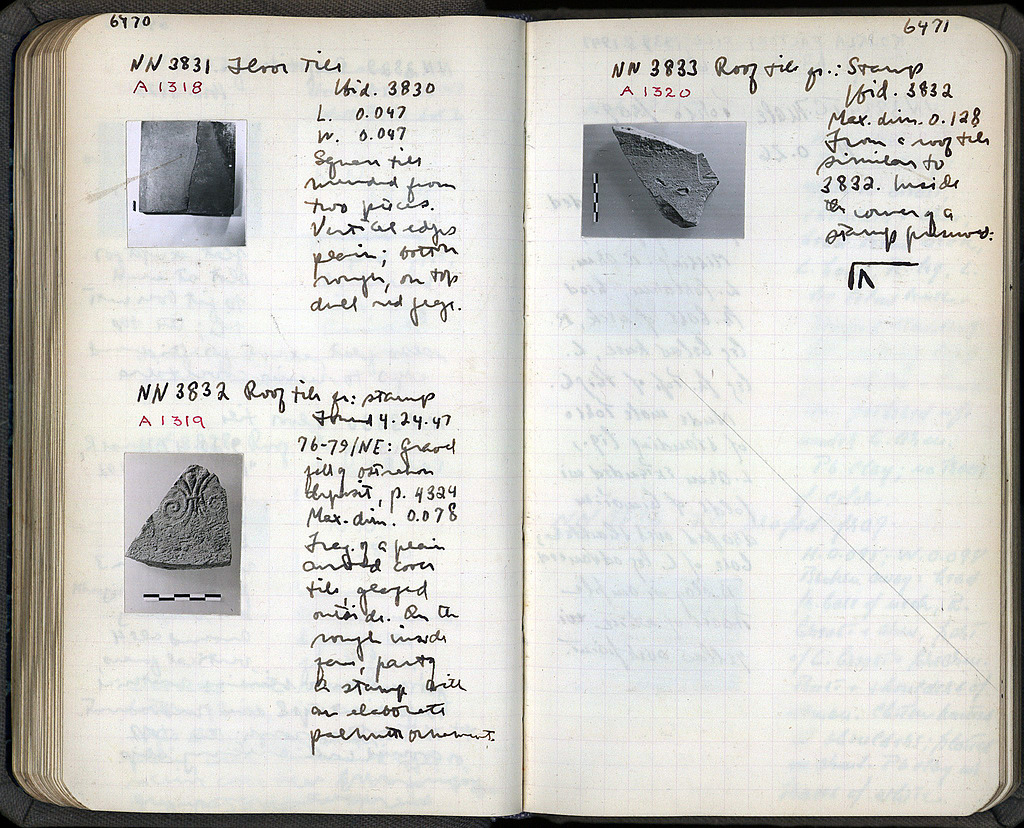 6470
NN 3831 Floor Tile
A 1318
Ibid. 3830
L. 0.047
W. 0.047
Square tile
mended from
two pieces.
Vertical edges
plain; bottom
rough, on top
dull red
NN 3832 Roof tile fr: stamp
A 1319
Found 4.24.47
76-79/NE: Gravel
fill of ostrakon
deposit, p. 4324
Max. dim. 0.078
Frag of a plain
curved cover
tile, glazed
outside. On the
rough inside
part of
a stamp with
an elaborate
palmette ornament.
6471
NN 3833 Roof tile fr.: Stamp
A 1320
Ibid. 3832
Max. dim. 0.128
From a roof tile
similar to
3832. Inside
the corner of a
stamp preserved: